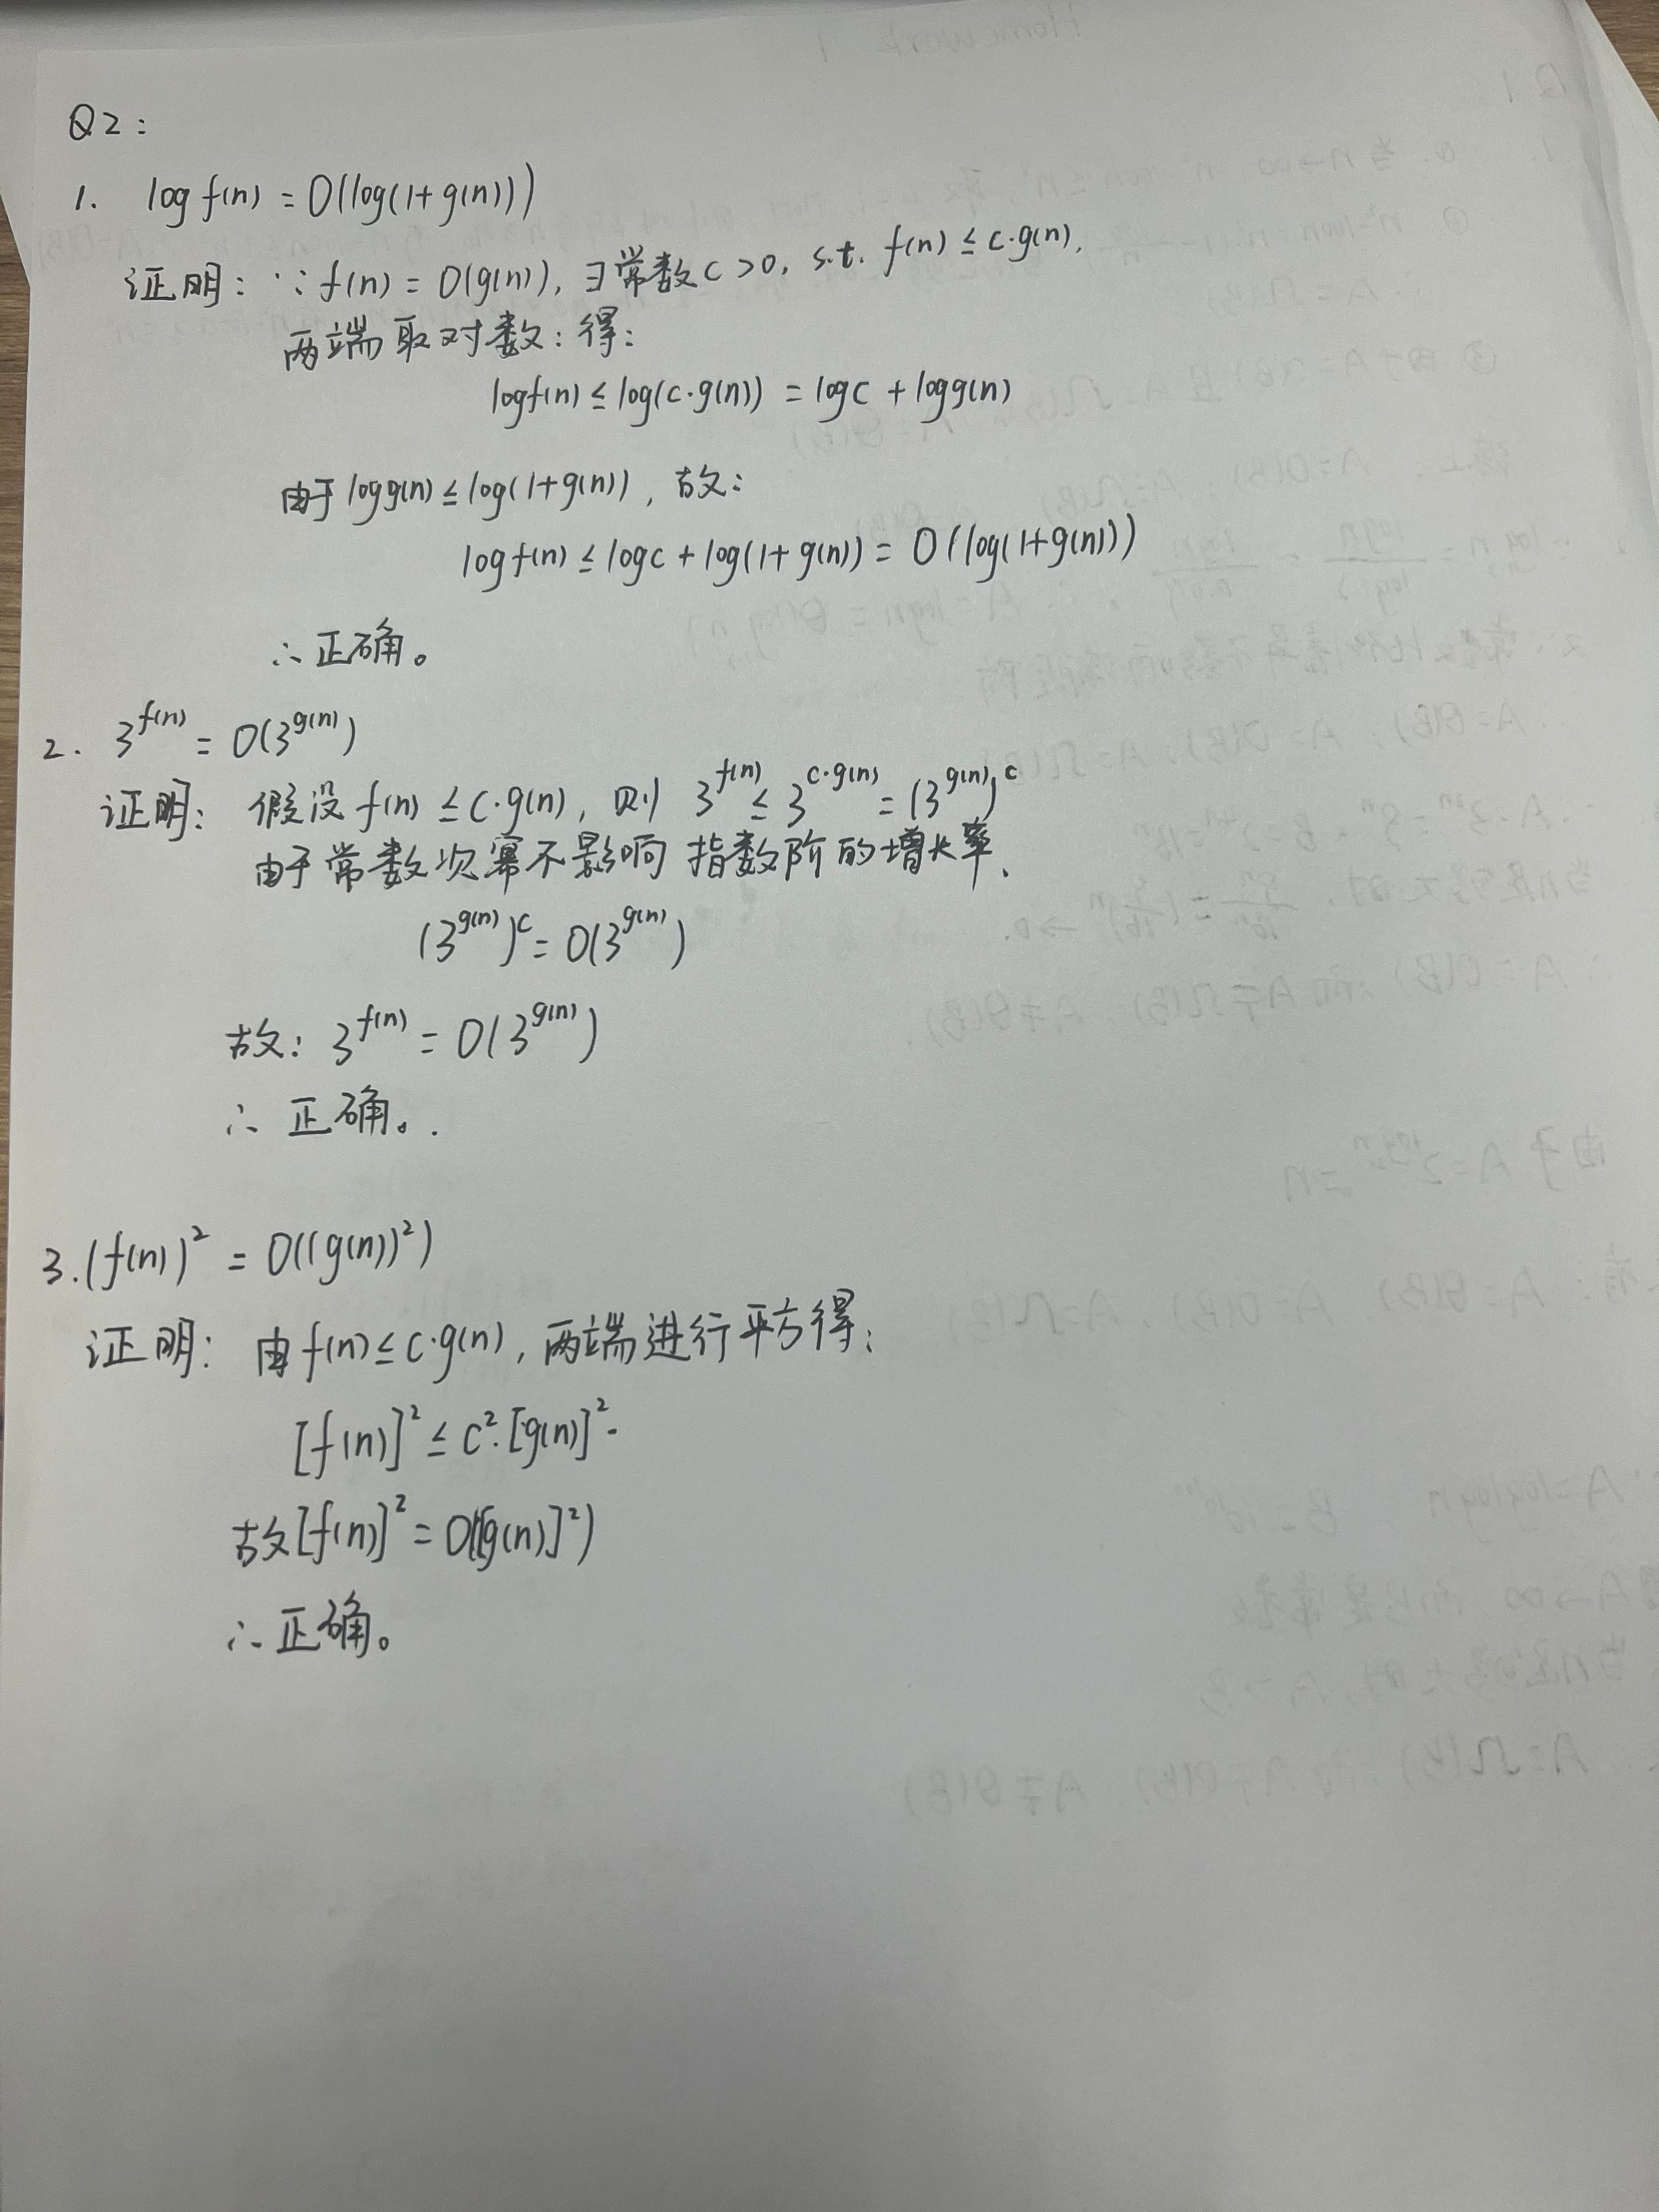 Q2:
1. log f(n) = O(log(1+g(n)))
证明: ∵ f(n) = O(g(n)), ∃常数c>0, s.t. f(n) ≤ c·g(n),
两端取对数: 得:
logf(n) ≤ log(c·g(n)) = logc + logg(n)
由于 logg(n) ≤ log(1+g(n)), 故:
logf(n) ≤ logc + log(1+g(n)) = O(log(1+g(n)))
∴正确。
2. 3^{f(n)} = O(3^{g(n)})
证明: 假设 f(n) ≤ c·g(n), 则 3^{f(n)} ≤ 3^{c·g(n)} = (3^{g(n)})^c
由于常数次幂不影响指数阶的增长率,
(3^{g(n)})^c = O(3^{g(n)})
故: 3^{f(n)} = O(3^{g(n)})
∴ 正确。.
3. (f(n))² = O((g(n))²)
证明: 由 f(n) ≤ c·g(n), 两端进行平方得:
[f(n)]² ≤ c²·[g(n)]².
故[f(n)]² = O([g(n)]²)
∴正确。